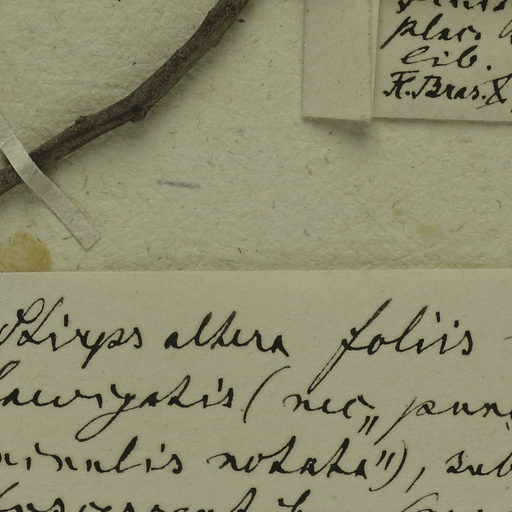 plac.
lib.
Fl. Bras. X
Stirps altera foliis
laevigatis (nec „punc
minulis notata"), sub